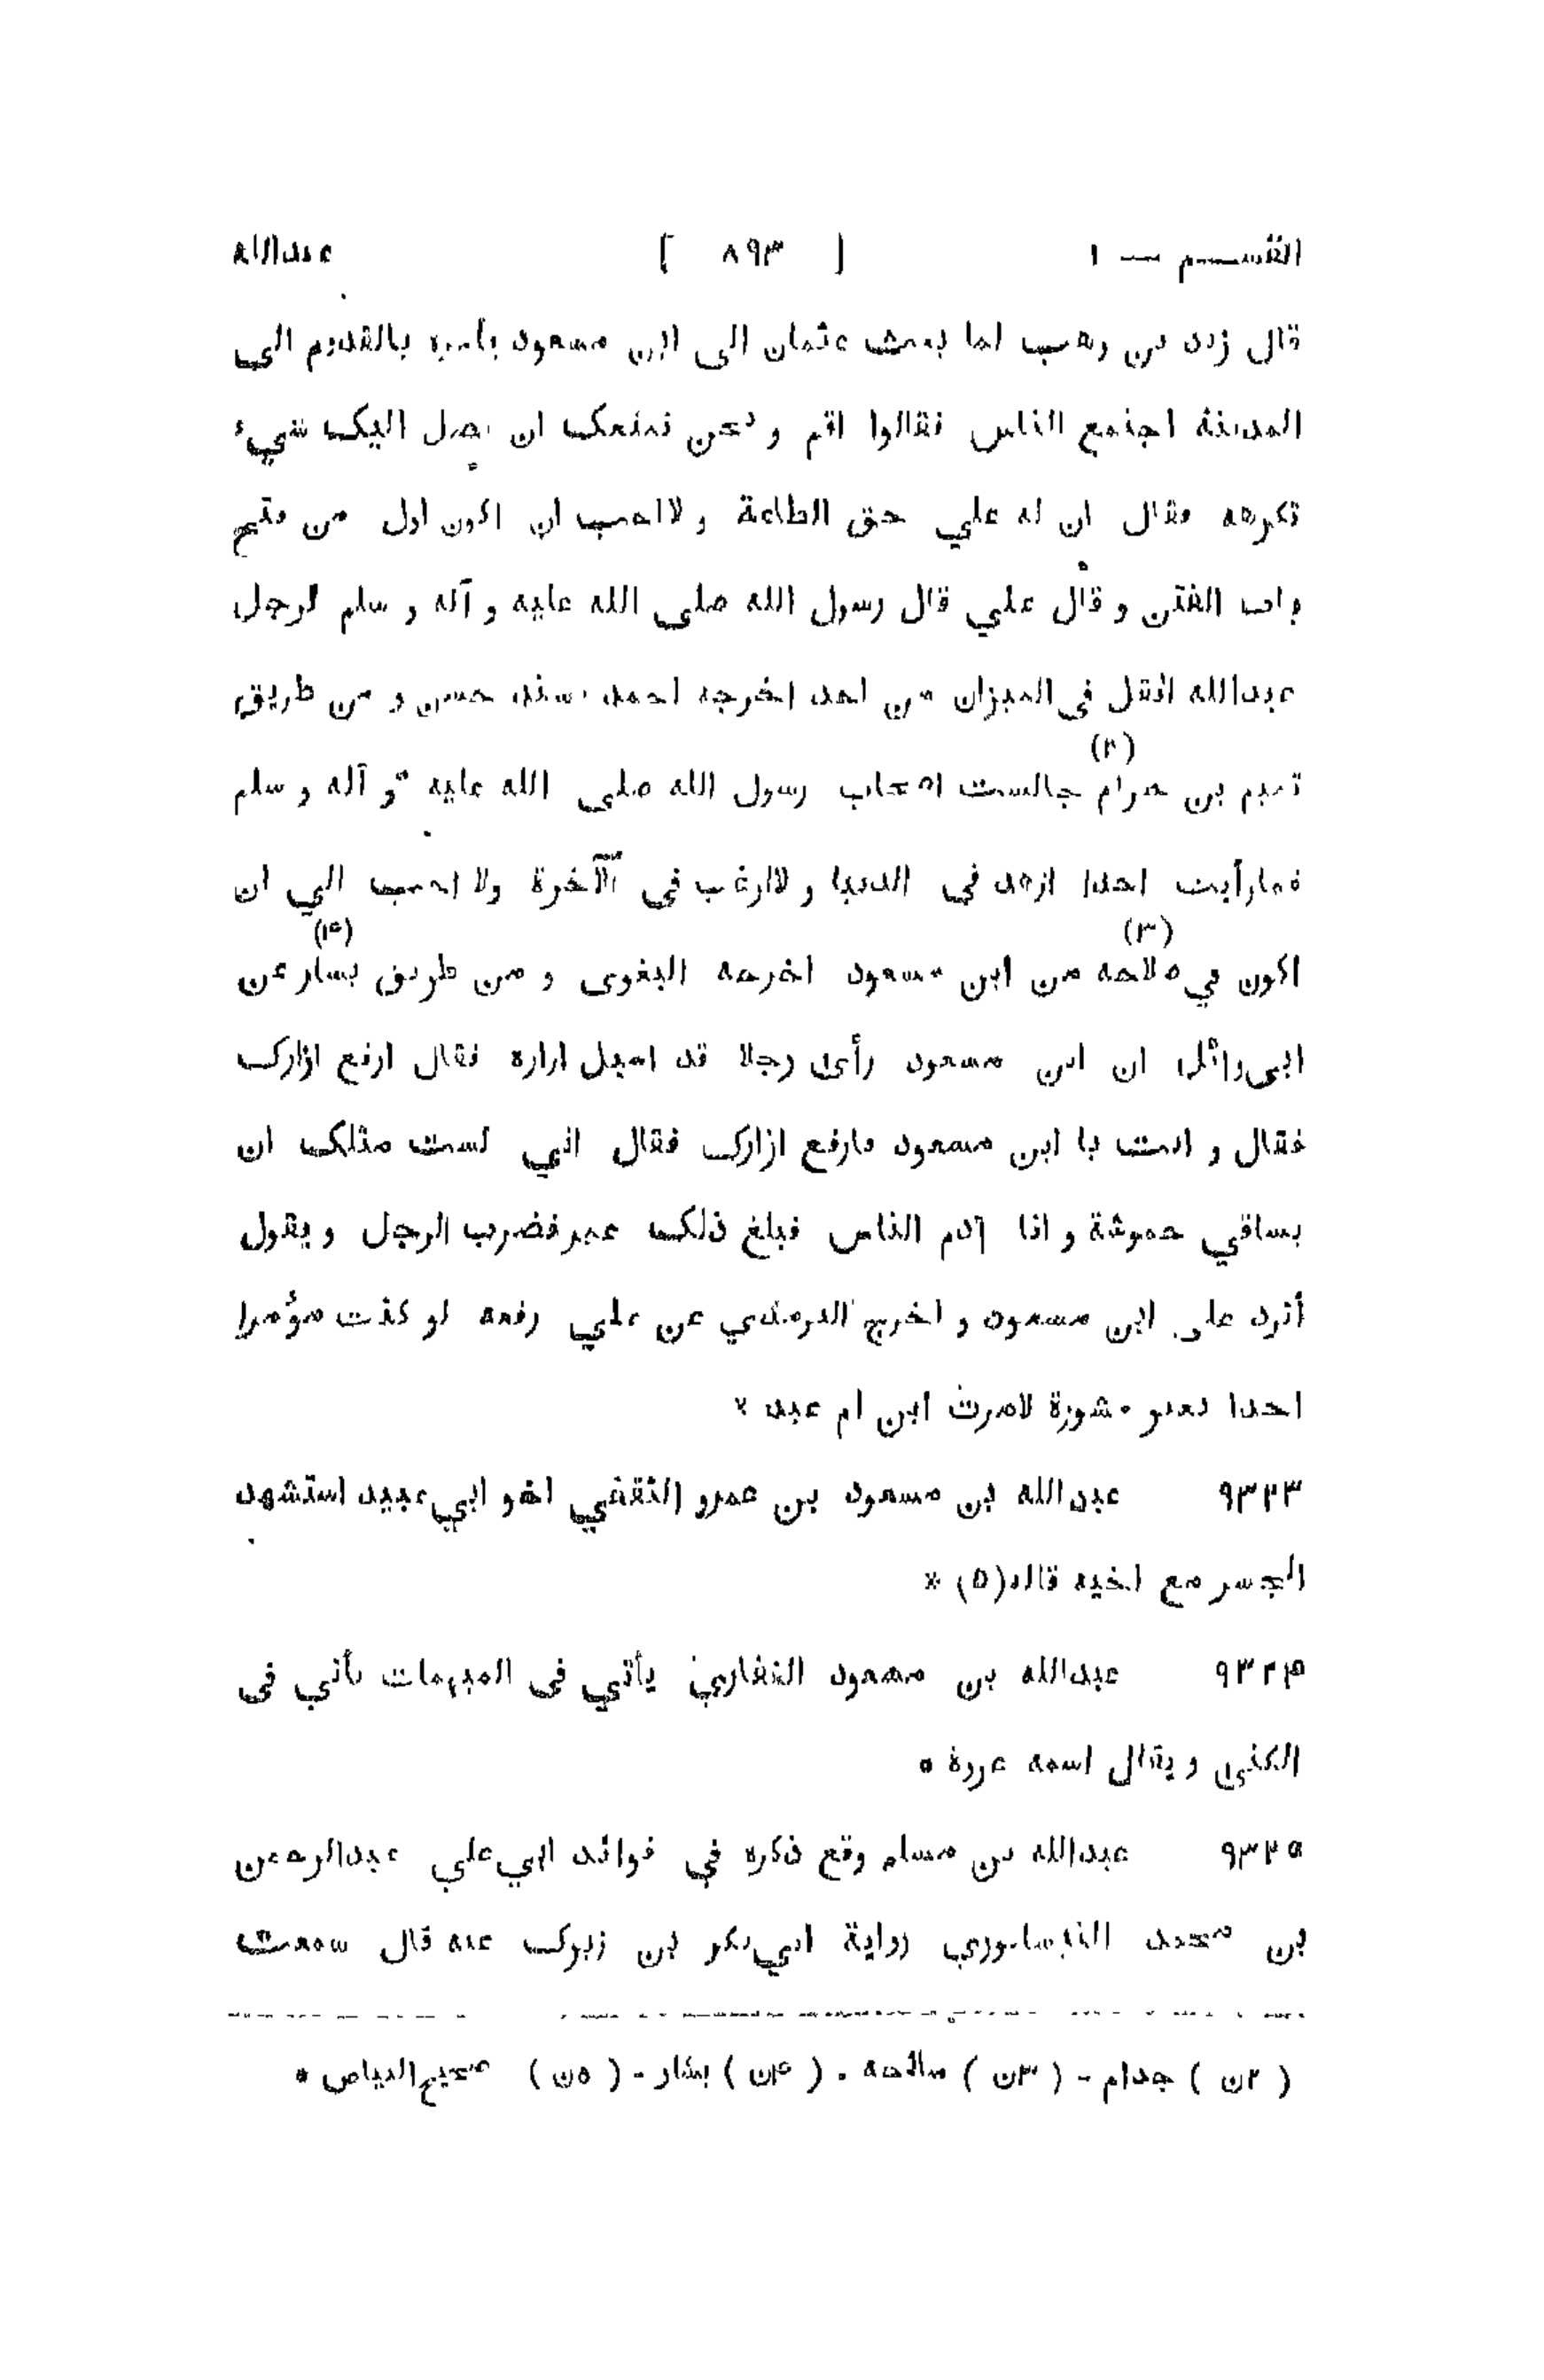 القسم — ١ [ ٨٩٣ ] عبدالله
قال زيد بن وهب لما بعث عثمان الى ابن مسعود يأمره بالقدوم الى
المدينة اجتمع الناس فقالوا اقم و نحن نمنعك ان يصل اليك شيء
تكرهه فقال ان له علي حق الطاعة و لا احب ان اكون اول من فتح
باب الفتن و قال علي قال رسول الله صلى الله عليه و آله و سلم لرجل
عبدالله اثقل فى الميزان من احد اخرجه احمد بسند حسن و من طريق
تميم بن حرام (٢) جالست اصحاب رسول الله صلى الله عليه و آله و سلم
فمارأيت احدا ازهد في الدنيا و لاارغب فى الآخرة ولا احب الي ان
اكون في صلاحه (٣) من ابن مسعود اخرجه البغوى و من طريق يسار (۴) عن
ابى وائل ان ابن مسعود رأى رجلا قد اسبل ازاره فقال ارفع ازارك
فقال و انت يا ابن مسعود فارفع ازارك فقال اني لست مثلك ان
بساقي حموشة و انا آدم الناس فبلغ ذلك عمر فضرب الرجل و يقول
أترد على ابن مسعود و اخرج الترمذي عن علي رفعه لو كنت مؤمرا
احدا بغير مشورة لامرت ابن ام عبد *
٩٣٢٣ عبدالله بن مسعود بن عمرو الثقفي اخو ابي عبيد استشهد
الجسر مع اخيه قاله (٥) *
٩٣٢۴ عبدالله بن مسعود الغفاري يأتي فى المبهمات يأتي فى
الكنى و يقال اسمه عروة *
٩٣٢٥ عبدالله بن مسلم وقع ذكره في فوائد ابي علي عبدالرحمن
بن محمد النيسابوري رواية ابي بكر بن زيرك عنه قال سمعت
( ٢ن ) جدام - ( ٣ن ) سالفه - ( ۴ن ) بشار - ( ٥ن ) صحيح البياض *